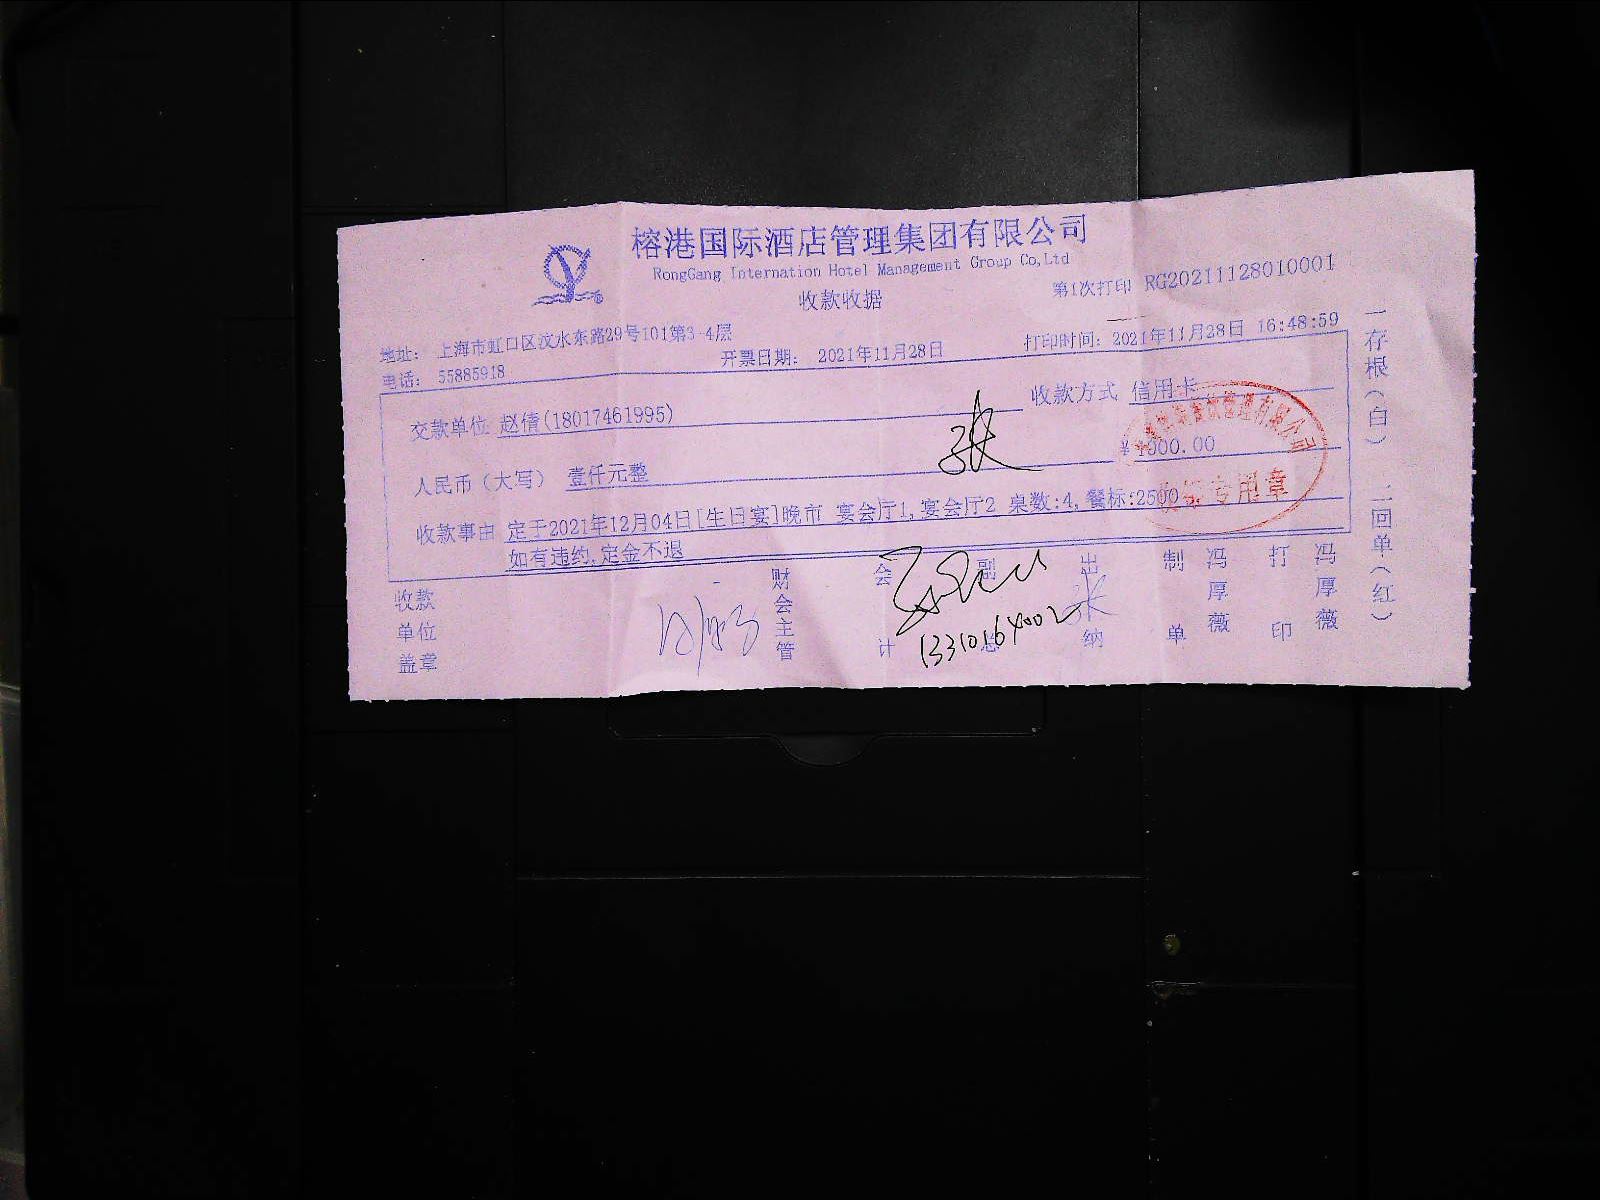 榕港国际酒店管理集团有限公司
RongGang Internation Hotel Management Group Co,Ltd
收款收据
第1次打印 RG20211128010001
地址： 上海市虹口区汶水东路29号101第3-4层
电话： 55885918
开票日期： 2021年11月28日
打印时间：2021年11月28日 16:48:59
交款单位 赵倩(18017461995)
收款方式 信用卡
人民币（大写） 壹仟元整
¥ 1000.00
收款事由 定于2021年12月04日[生日宴]晚市 宴会厅1,宴会厅2 桌数:4,餐标:2500
如有违约,定金不退
管理有限公司
专用章
张
收款单位盖章
财会主管
会计
副总
出纳
制单
冯厚薇
打印
冯厚薇
一存根（白） 二回单（红）